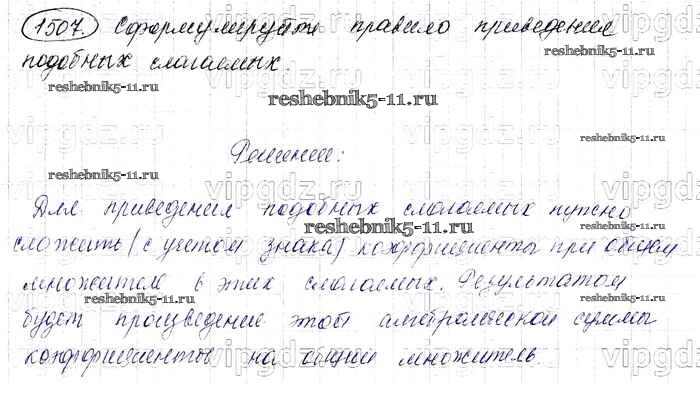 1507. Сформулируйте правило приведения
reshebnik5-11.ru
подобных слагаемых.
reshebnik5-11.ru
reshebnik5-11.ru
vipgdz.ru
reshebnik5-11.ru
Решение:
reshebnik5-11.ru
Для приведения подобных слагаемых нужно
reshebnik5-11.ru
сложить (с учетом знака) коэффициенты при общем
множителе в этих слагаемых. Результатом
reshebnik5-11.ru
reshebnik5-11.ru
будет произведение этой алгебраической суммы
коэффициентов на общий множитель.